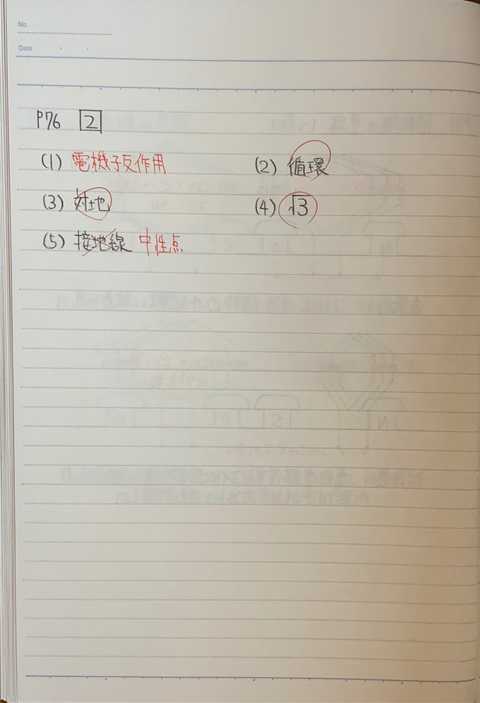 No.
Date
P76 2
(1) 電機子反作用 (2) 循環
(3) 対地 (4) √3
(5) 接地線 中性点